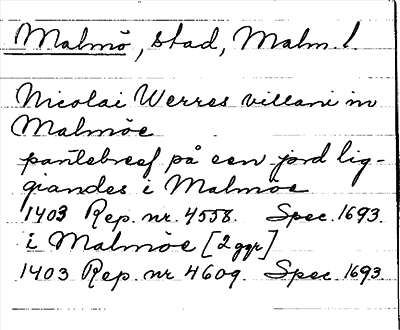 Malmö, stad, Malm. l.
Nicolai Werres villani in
Malmöe
pantebref på een jord lig-
giandes i Malmöe
1403 Rep. nr. 4558. Spec. 1693.
i Malmöe [2 ggr]
1403 Rep. nr. 4609. Spec. 1693